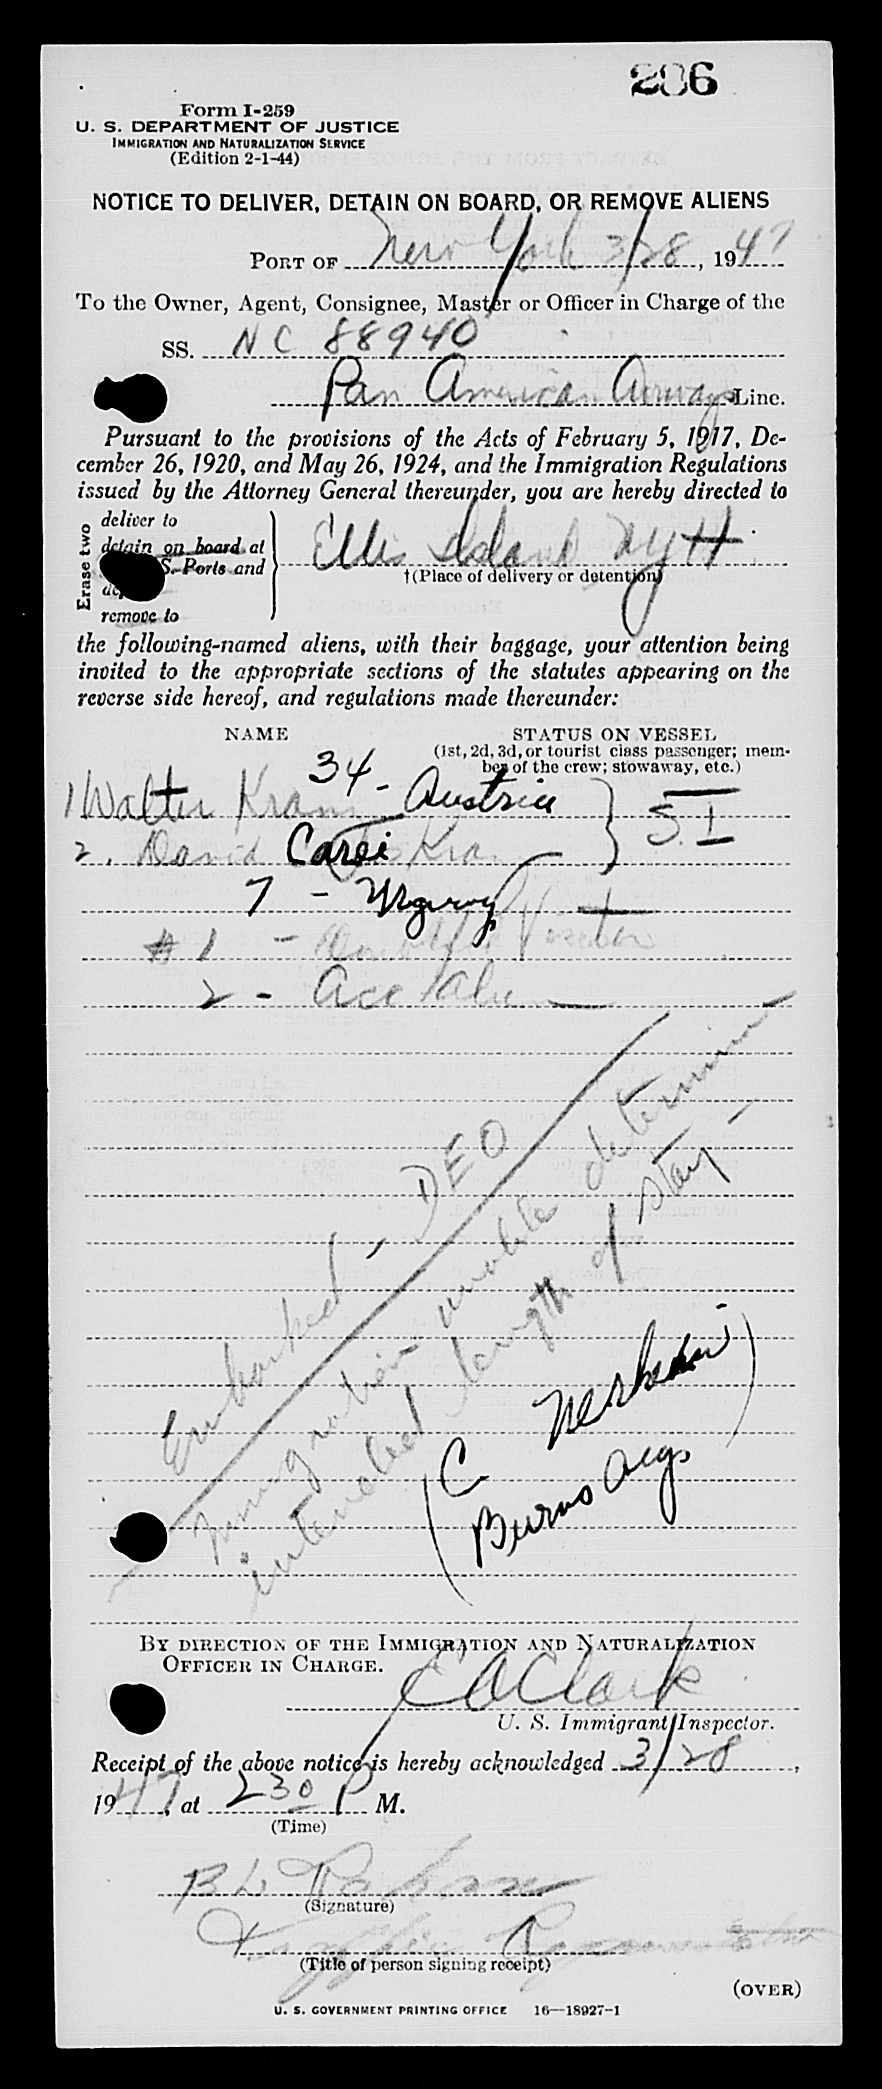 206
Form I-259
U. S. DEPARTMENT OF JUSTICE
IMMIGRATION AND NATURALIZATION SERVICE
(Edition 2-1-44)
NOTICE TO DELIVER, DETAIN ON BOARD, OR REMOVE ALIENS
PORT OF New York 3/28, 1947
To the Owner, Agent, Consignee, Master or Officer in Charge of the
SS. NC 88940
Pan American Airways Line.
Pursuant to the provisions of the Acts of February 5, 1917, De-
cember 26, 1920, and May 26, 1924, and the Immigration Regulations
issued by the Attorney General thereunder, you are hereby directed to
Erase two
deliver to
detain on board at
S. Ports and
remove to
Ellis Island NYH
†(Place of delivery or detention)
the following-named aliens, with their baggage, your attention being
invited to the appropriate sections of the statutes appearing on the
reverse side hereof, and regulations made thereunder:
NAME STATUS ON VESSEL
(1st, 2d, 3d, or tourist class passenger; mem-
ber of the crew; stowaway, etc.)
34 - Austria
1 Walter
S.I
2. David
7 -
#1 -
2 - Acc Alien
Embarked - DEO
Immigration unable determine
intended length of stay -
(C
Burns
BY DIRECTION OF THE IMMIGRATION AND NATURALIZATION
OFFICER IN CHARGE.
Clark
U. S. Immigrant Inspector.
Receipt of the above notice is hereby acknowledged 3/28,
1947, at 230 P M.
(Time)
B L
(Signature)
Traffic Representative
(Title of person signing receipt)
(OVER)
U. S. GOVERNMENT PRINTING OFFICE 16—18927-1